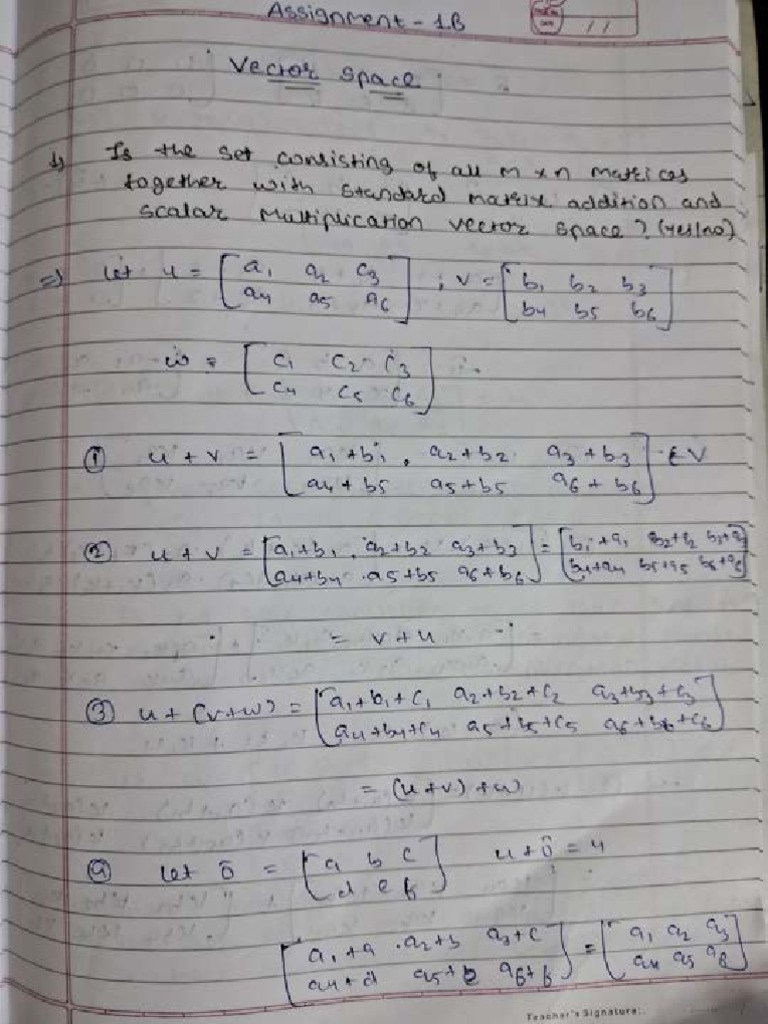 Assignment - 1.B
Vector Space
1) Is the set consisting of all m x n matrices
together with standard matrix addition and
scalar multiplication vector space? (yes/no)
=> Let u = [a1 a2 c3 ; v = [b1 b2 b3
a4 a5 a6] b4 b5 b6]
w = [c1 c2 c3
c4 c5 c6]
① u + v = [a1+b1 a2+b2 a3+b3 ∈ V
a4+b5 a5+b5 a6+b6]
② u + v = [a1+b1 a2+b2 a3+b3 = [b1+a1
a4+b4 a5+b5 a6+b6] b4+a4 b5+a5 b6+a6]
= v + u
③ u + (v+w) = [a1+b1+c1 a2+b2+c2 a3+b3+c3
a4+b4+c4 a5+b5+c5 a6+b6+c6]
= (u+v)+w
Let ō = [a b c u+ō = u
d e f]
[a1+a a2+b a3+c = [a1 a2 a3
a4+d a5+e a6+f] a4 a5 a6]
Teacher's Signature: